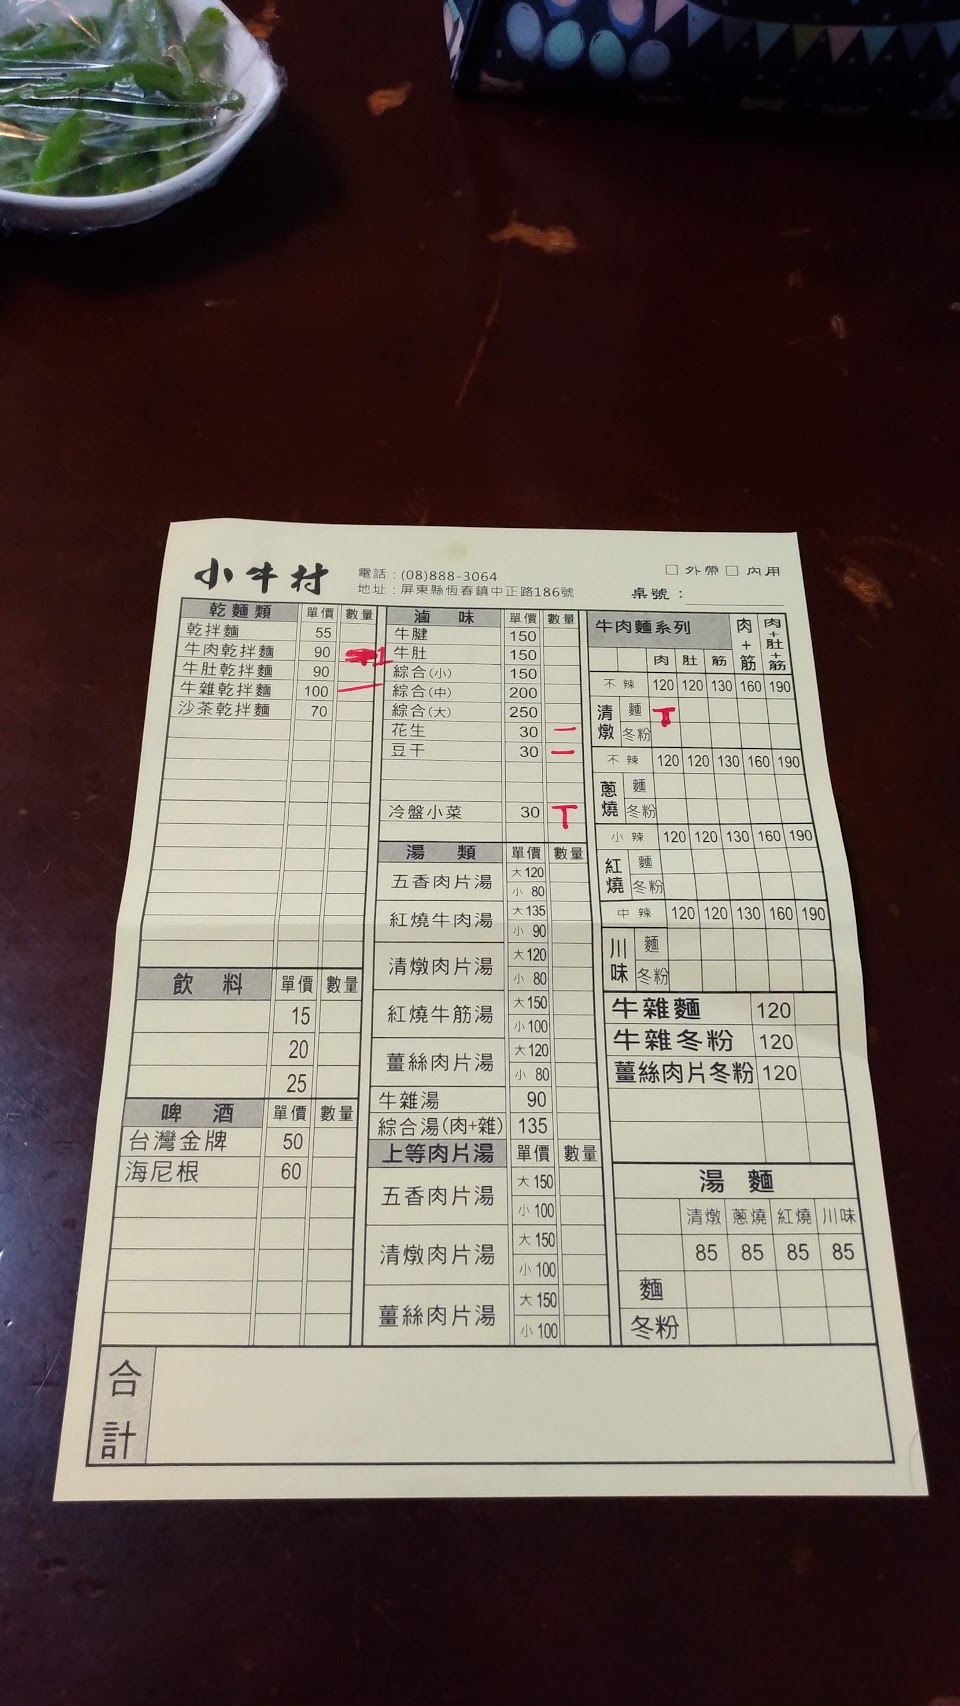 小牛村
電話：(08)888-3064
地址：屏東縣恆春鎮中正路186號
□外帶□內用
桌號：
乾麵類 單價 數量
乾拌麵 55
牛肉乾拌麵 90 1
牛肚乾拌麵 90
牛雜乾拌麵 100 一
沙茶乾拌麵 70
飲料 單價 數量
15
20
25
啤酒 單價 數量
台灣金牌 50
海尼根 60
滷味 單價 數量
牛腱 150
牛肚 150
綜合(小) 150
綜合(中) 200
綜合(大) 250
花生 30 一
豆干 30 一
冷盤小菜 30 T
湯類 單價 數量
五香肉片湯 大120
小 80
紅燒牛肉湯 大135
小 90
清燉肉片湯 大120
小 80
紅燒牛筋湯 大150
小100
薑絲肉片湯 大120
小 80
牛雜湯 90
綜合湯(肉+雜) 135
上等肉片湯 單價 數量
五香肉片湯 大150
小100
清燉肉片湯 大150
小100
薑絲肉片湯 大150
小100
牛肉麵系列 肉+筋 肉+肚+筋
肉 肚 筋
不辣 120 120 130 160 190
清燉 麵 T
冬粉
不辣 120 120 130 160 190
蔥燒 麵
冬粉
小辣 120 120 130 160 190
紅燒 麵
冬粉
中辣 120 120 130 160 190
川味 麵
冬粉
牛雜麵 120
牛雜冬粉 120
薑絲肉片冬粉 120
湯麵
清燉 蔥燒 紅燒 川味
85 85 85 85
麵
冬粉
合計